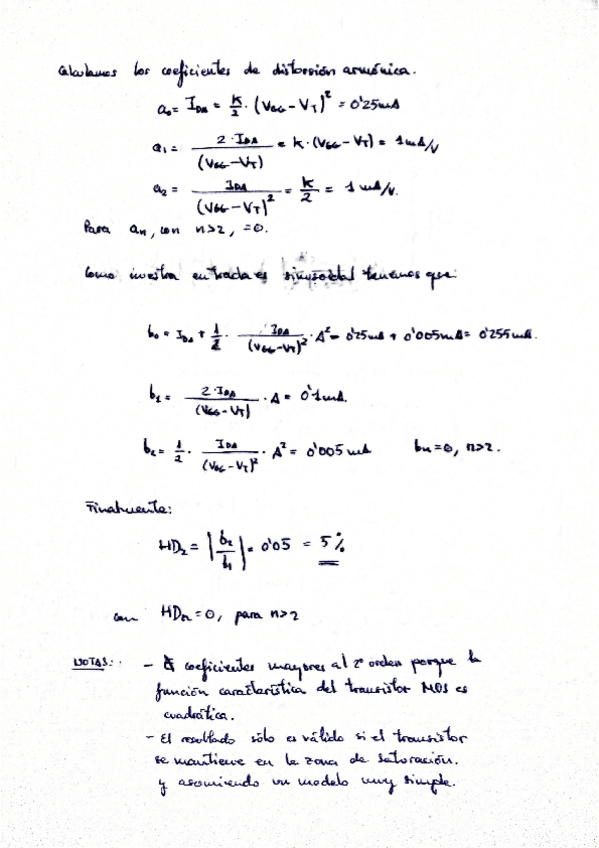 Calculamos los coeficientes de distorsión armónica.
a₀ = I_DA = K/2 · (V_GG - V_T)² = 0'25mA
a₁ = 2·I_DA / (V_GG - V_T) = K·(V_GG - V_T) = 1mA/V
a₂ = I_DA / (V_GG - V_T)² = K/2 = 1 mA/V.
Para aₙ, con n>2, =0.
Como nuestra entrada es sinusoidal tenemos que:
b₀ = I_DA + 1/2 · I_DA / (V_GG - V_T)² · A² = 0'25mA + 0'005mA = 0'255mA.
b₁ = 2·I_DA / (V_GG - V_T) · A = 0'1mA.
b₂ = 1/2 · I_DA / (V_GG - V_T)² · A² = 0'005 mA bₙ=0, n>2.
Finalmente:
HD₂ = |b₂/b₁| = 0'05 = 5%
con HDₙ=0, para n>2
NOTAS: - coeficientes mayores al 2º orden porque la
función característica del transistor MOS es
cuadrática.
- El resultado sólo es válido si el transistor
se mantiene en la zona de saturación.
y asumiendo un modelo muy simple.